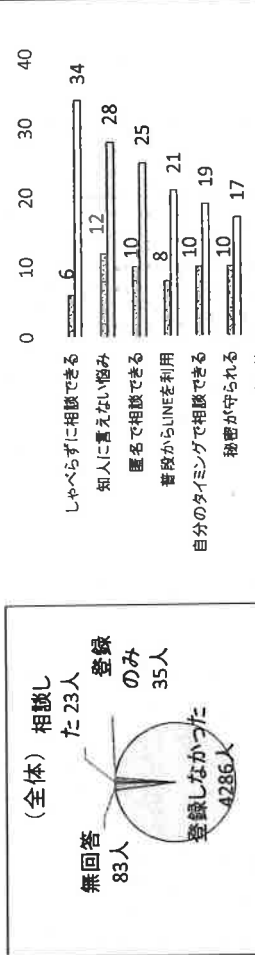 (全体)
相談し
た 23人
登録
のみ
35人
無回答
83人
登録しなかった
4286人
0 10 20 30 40
しゃべらずに相談できる 6 34
知人に言えない悩み 12 28
匿名で相談できる 10 25
普段からLINEを利用 8 21
自分のタイミングで相談できる 10 19
秘密が守られる 10 17